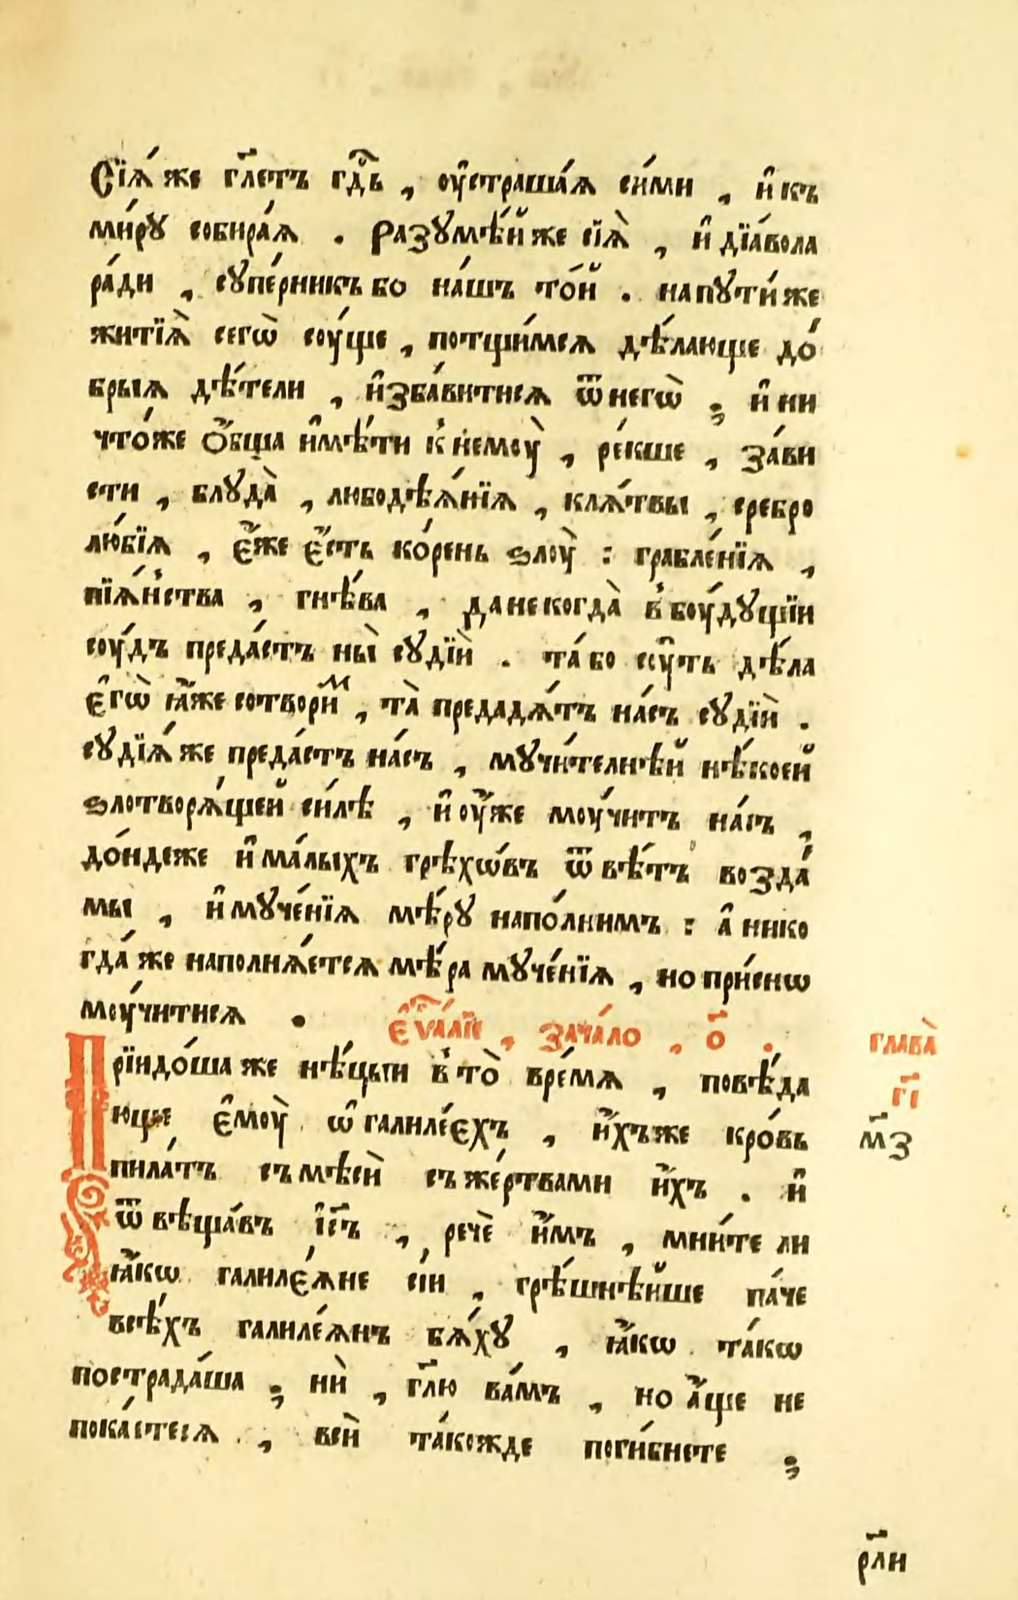 Сїѧ́ же гл҃етъ гдⷭ҇ь , оу҆страша́ѧ си́ми , и҆ къ
ми́рꙋ собира́ѧ . Разꙋмѣ́й же сїѧ̀ , и҆ дїа́вола
ра́ди , сꙋпе́рникъ бо на́шъ то́й . на пꙋти́ же
житїѧ̀ сегѡ̀ соу́ще , потщи́мсѧ дѣ́лающе до́
брыѧ дѣ́тели , и҆зба́витисѧ ѿ негѡ̀ ; и҆ ни
что́же ѻ҆́бща и҆мѣ́ти к̾ немоу̀ , ре́кше , за́ви
сти , блꙋда̀ , любодѣѧ́нїѧ , клѧ́твы , сребро
лю́бїѧ , є҆́же є҆́сть ко́рень ѕлоу̀ : грабле́нїѧ ,
пїѧ́н̾ства , гнѣ́ва , да не когда̀ в̾ боу́дꙋщїи
соу́дъ преда́стъ ны̀ сꙋдїѝ . та́ бо сꙋ́ть дѣ́ла
є҆гѡ̀ ꙗ҆́же сотвори́ⷨ , та̀ предадѧ́тъ на́съ сꙋдїѝ .
сꙋдїѧ́ же преда́стъ на́съ , мꙋчи́телнѣй нѣ́коей
ѕлотворѧ́щей си́лѣ , и҆ оу҆́же моу́читъ на́съ ,
до́ндеже и҆ ма́лыхъ грѣхѡ́въ ѿвѣ́тъ возда́
мы , и҆ мꙋче́нїѧ мѣ́рꙋ напо́лнимъ : а҆ нико
гда́ же наполнѧ́етсѧ мѣ́ра мꙋче́нїѧ , но при́снѡ
моу́читисѧ .
є҆ѵⷢ҇а́лїе , зача́ло , о҃ .
глава̀
гі҃
Прїидо́ша же нѣ́цыи в̾ то̀ вре́мѧ , повѣ́да
ющє є҆моу̀ ѡ҆ галиле́єхъ , и҆́хъже кро́вь
м҃з
пила́тъ съмѣсѝ съ же́ртвами и҆́хъ . и҆
ѿвѣща́въ і҆с҃ъ , речѐ и҆̀мъ , мни́те ли
ꙗ҆́кѡ галилє́ѧне сі́и , грѣ́шнѣйше па́че
всѣ́хъ галиле́ѧнъ бѧ́хꙋ , ꙗ҆́кѡ та́кѡ
пострада́ша ; нѝ , гл҃ю ва́мъ , но а҆́ще не
пока́етесѧ , всѝ та́кожде поги́бнете ;
рл҃и